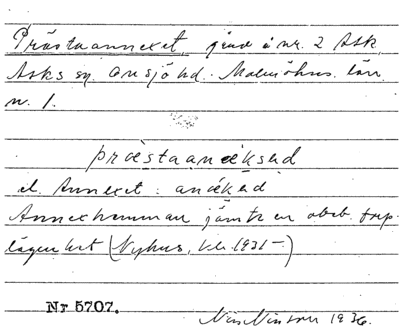 Prästaannexet, jord å nr. 2 Ask,
Asks sn, Onsjö hd. Malmöhus län
n. 1.
prästaanäksəd
el. Annexet: anäksəd
Annexhemman jämte en obeb.
lägenhet (Nyhus, 1931–)
Nr 5707.
Nils Nilsson 1936.